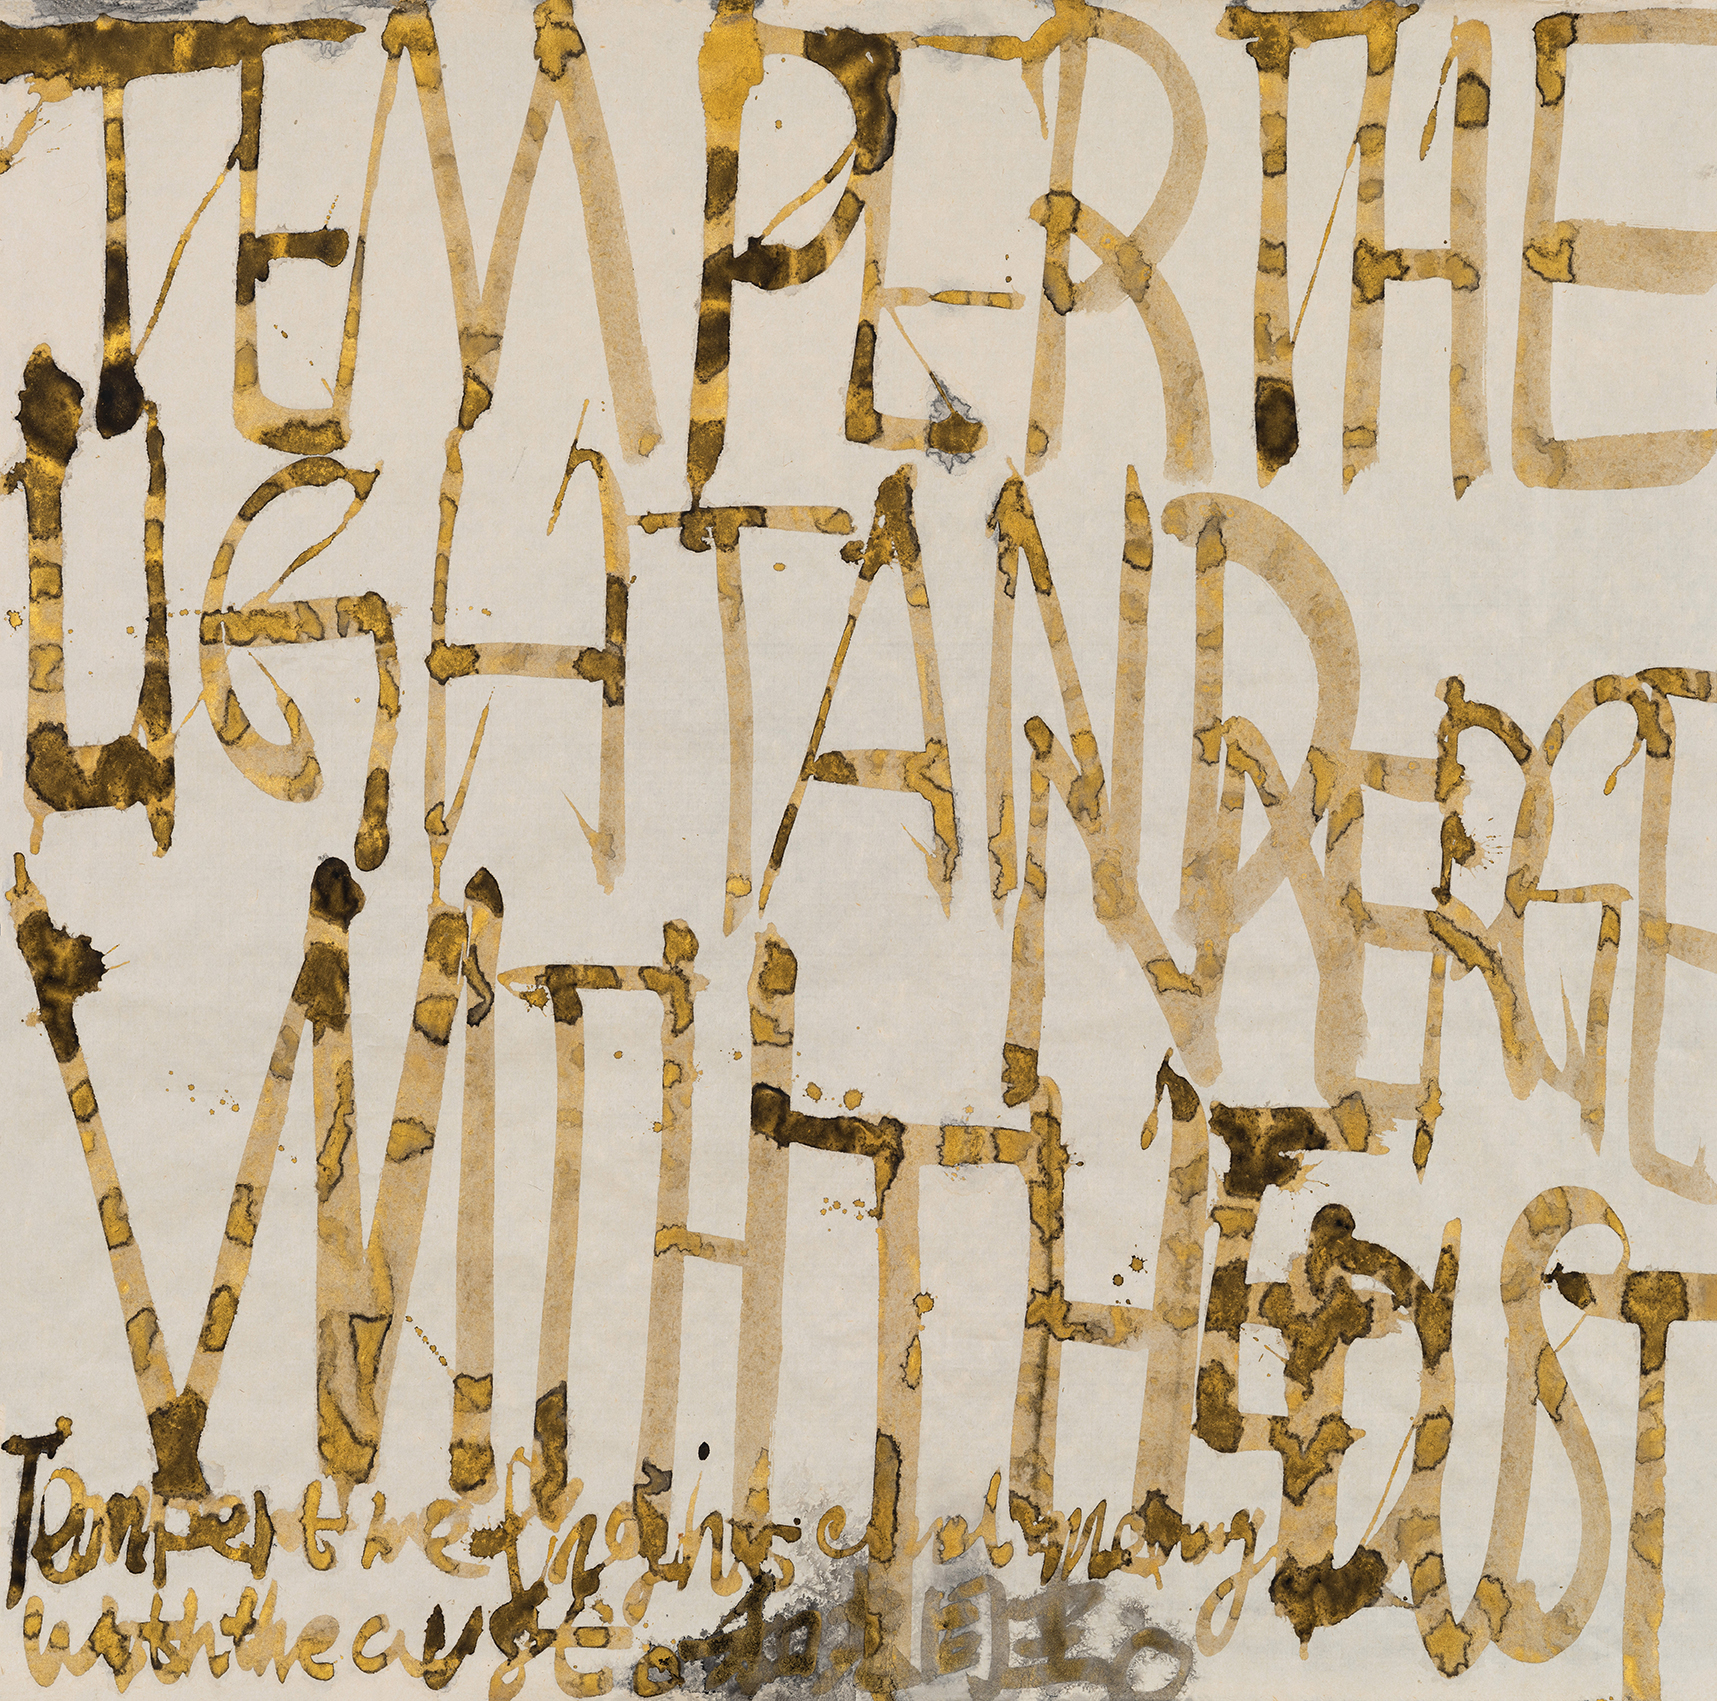 TEMPER THE
LIGHT AND MERGE
WITH THE DUST
Temper the
with the dust